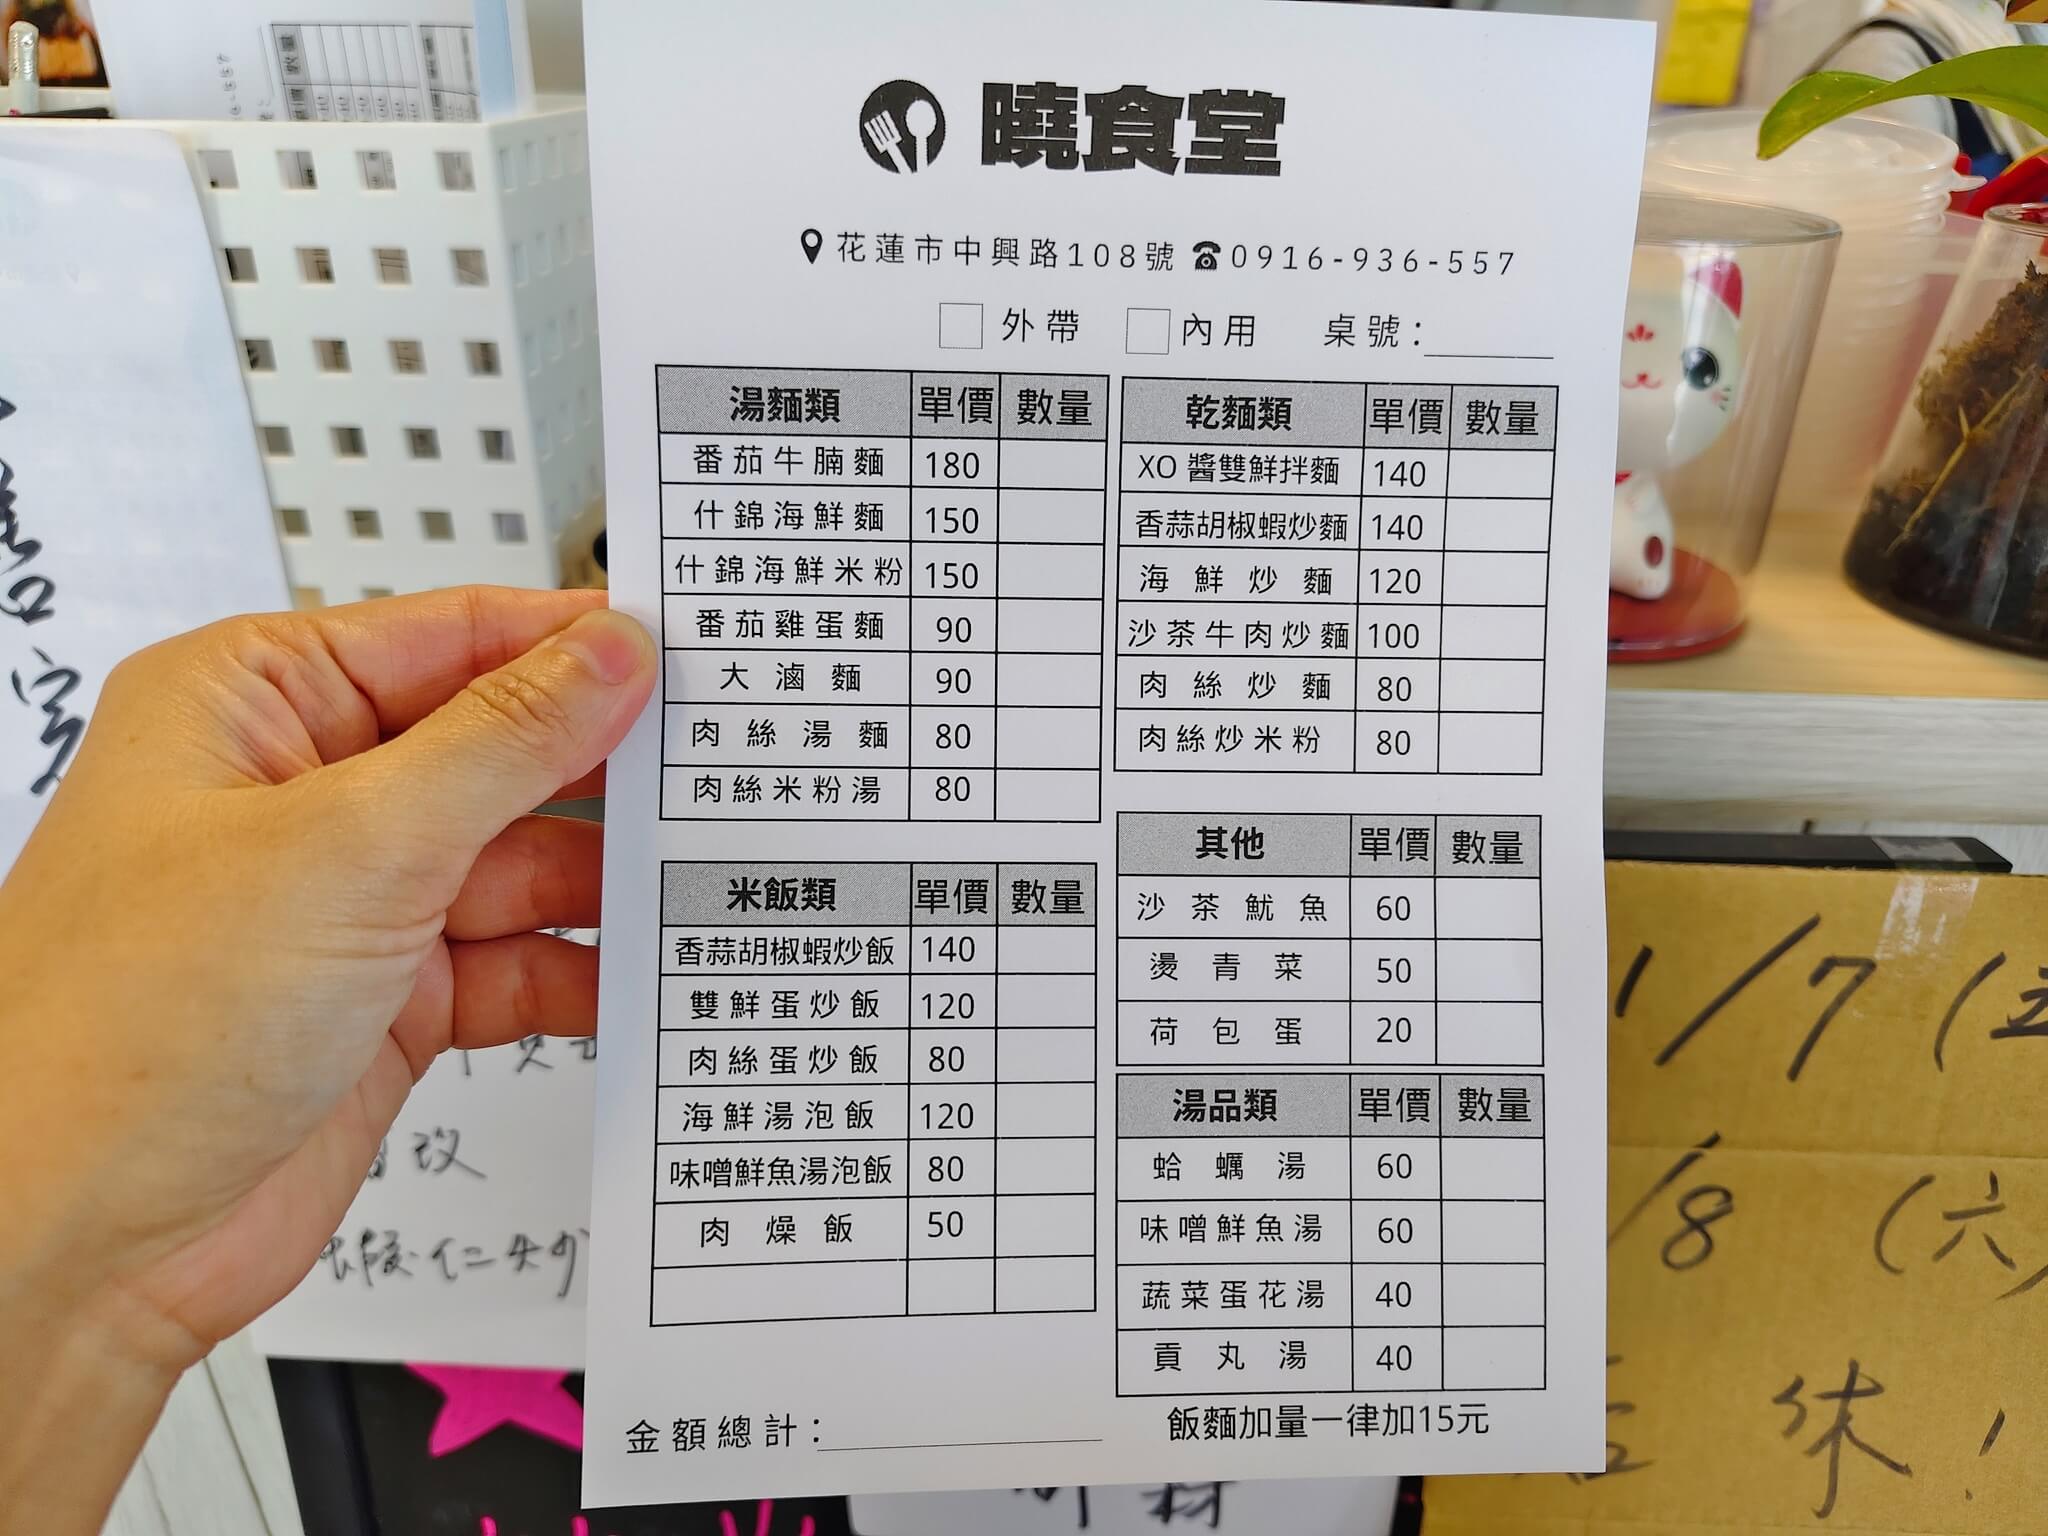 曉食堂
花蓮市中興路108號 ☎0916-936-557
外帶 內用 桌號:
湯麵類 單價 數量
番茄牛腩麵 180
什錦海鮮麵 150
什錦海鮮米粉 150
番茄雞蛋麵 90
大滷麵 90
肉絲湯麵 80
肉絲米粉湯 80
米飯類 單價 數量
香蒜胡椒蝦炒飯 140
雙鮮蛋炒飯 120
肉絲蛋炒飯 80
海鮮湯泡飯 120
味噌鮮魚湯泡飯 80
肉燥飯 50
金額總計:
乾麵類 單價 數量
XO醬雙鮮拌麵 140
香蒜胡椒蝦炒麵 140
海鮮炒麵 120
沙茶牛肉炒麵 100
肉絲炒麵 80
肉絲炒米粉 80
其他 單價 數量
沙茶魷魚 60
燙青菜 50
荷包蛋 20
湯品類 單價 數量
蛤蠣湯 60
味噌鮮魚湯 60
蔬菜蛋花湯 40
貢丸湯 40
飯麵加量一律加15元
1/7 (五
/8 (六)
休!